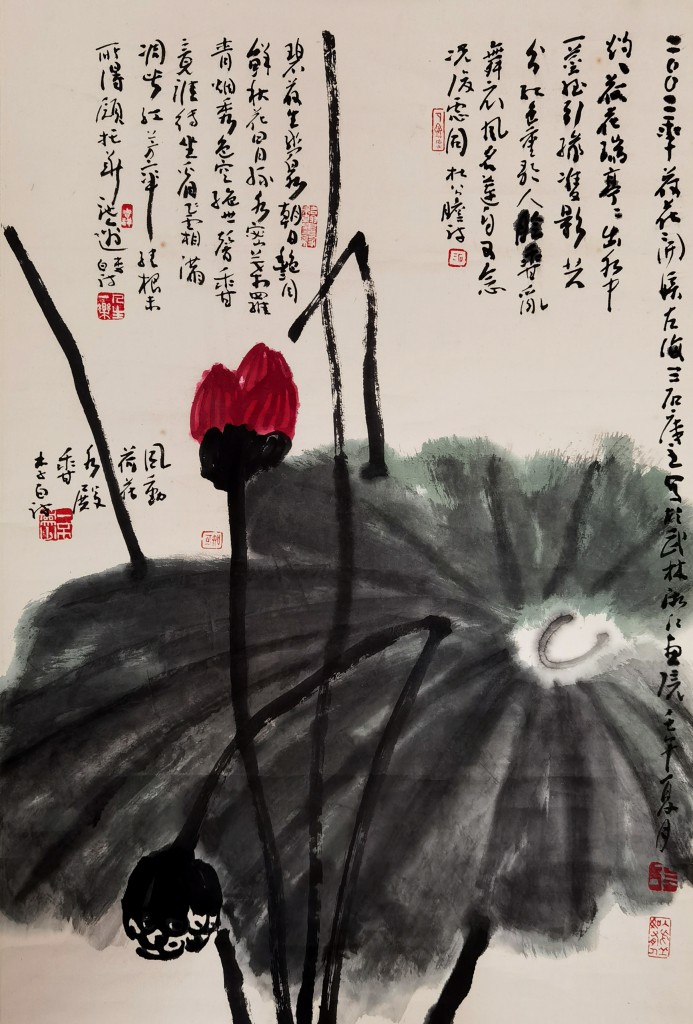 二〇〇二年荷花開候左海三石廣主寫於武林浙江畫院壬午夏月
灼灼荷花瑞亭亭出水中
一莖孤引緑雙影共
分紅色奪歌人臉香亂
舞衣風名蓮自可念
況復同 杜公瞻詩
碧荷生幽泉朝日艷且
鮮秋花冒緑水密葉羅
青烟秀色空絶世馨香
竟誰傳坐看飛霜滿
凋此紅芳年結根未
所得願托華池邊李白詩
風動
荷花
水殿
香
李白詩